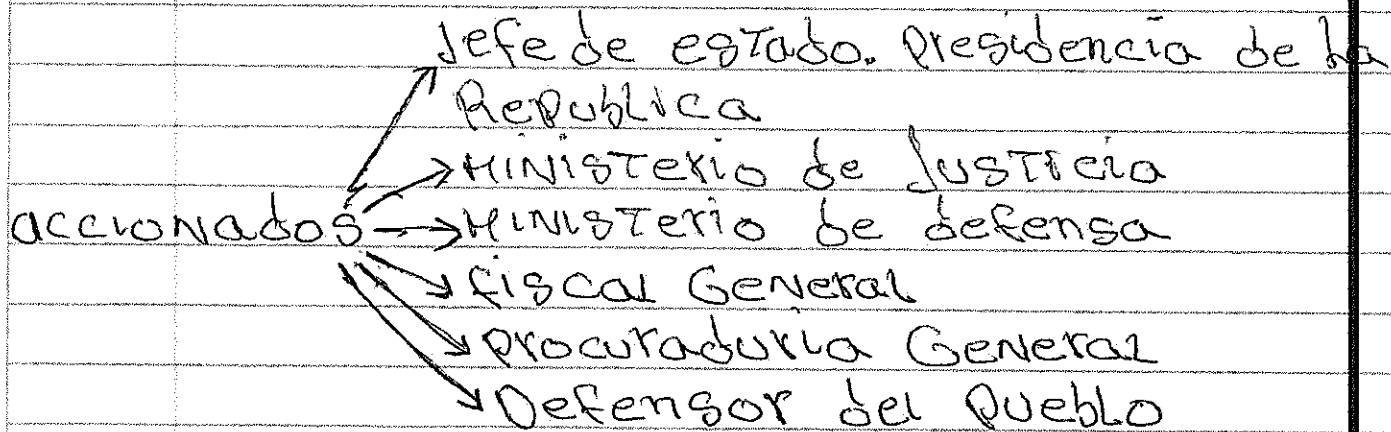 Jefe de estado. Presidencia de la
Republica
MINISTERIO de Justicia
accionados MINISTERIO de defensa
fiscal General
procuraduria General
Defensor del Pueblo